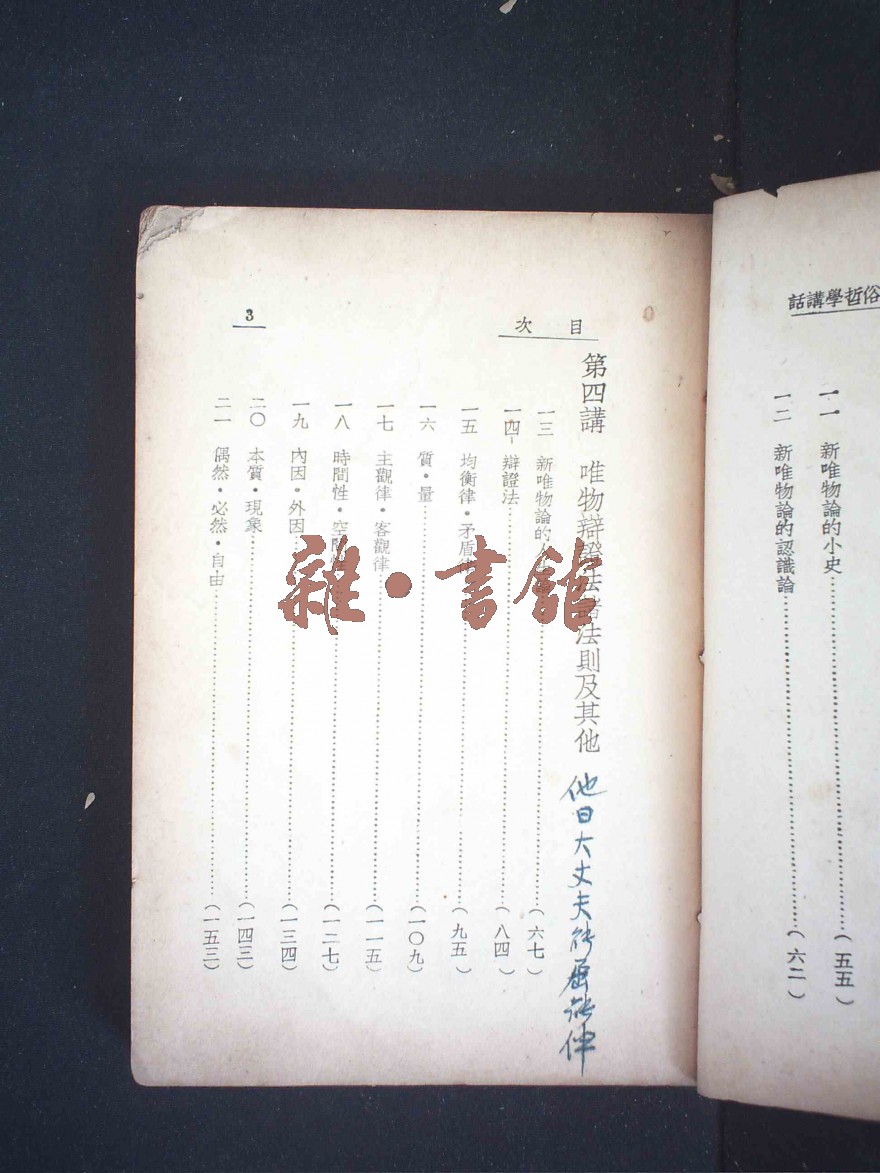 俗哲學講話
一一　新唯物論的小史……（五五）
一二　新唯物論的認識論……（六二）
目次
3
第四講　唯物辯證法諸法則及其他
他日大丈夫能屈能伸
一三　新唯物論的……（六七）
一四　辯證法……（八四）
一五　均衡律・矛盾律……（九五）
一六　質・量……（一〇九）
一七　主觀律・客觀律……（一一五）
一八　時間性・空間性……（一二七）
一九　內因・外因……（一三四）
二〇　本質・現象……（一四三）
二一　偶然・必然・自由……（一五三）
雜・書館